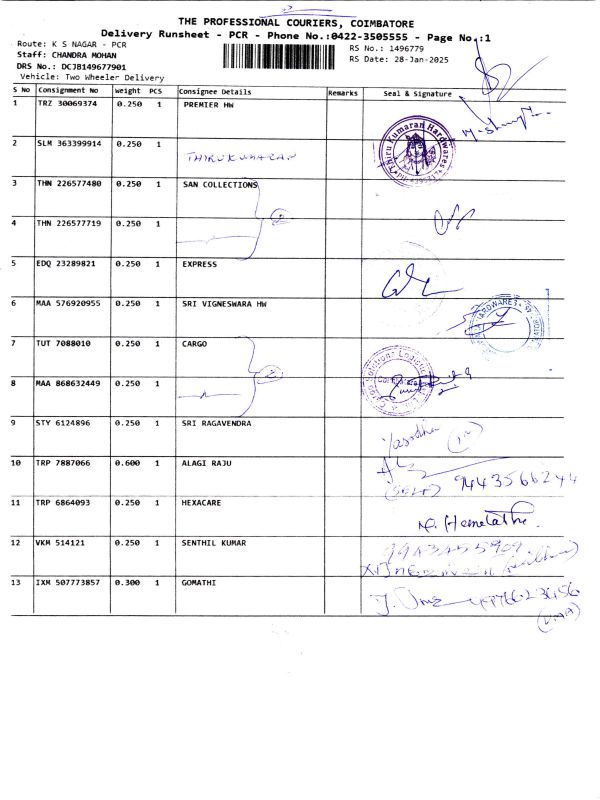 THE PROFESSIONAL COURIERS, COIMBATORE
Delivery Runsheet - PCR - Phone No.:0422-3505555 - Page No.:1
Route: K S NAGAR - PCR
Staff: CHANDRA MOHAN
DRS No.: DCJB149677901
Vehicle: Two Wheeler Delivery
RS No.: 1496779
RS Date: 28-Jan-2025
S No Consignment No Weight PCS Consignee Details Remarks Seal & Signature
1 TRZ 30069374 0.250 1 PREMIER HW
2 SLM 363399914 0.250 1 THIRUKUMARAN
Thiru Kumaran Hardwares
3 THN 226577480 0.250 1 SAN COLLECTIONS
4 THN 226577719 0.250 1
5 EDQ 23289821 0.250 1 EXPRESS
6 MAA 576920955 0.250 1 SRI VIGNESWARA HW
HARDWARES
7 TUT 7088010 0.250 1 CARGO
8 MAA 868632449 0.250 1
9 STY 6124896 0.250 1 SRI RAGAVENDRA Yasodha
10 TRP 7887066 0.600 1 ALAGI RAJU (SELF) 9443566244
11 TRP 6864093 0.250 1 HEXACARE N. Hemalatha.
12 VKM 514121 0.250 1 SENTHIL KUMAR
13 IXM 507773857 0.300 1 GOMATHI J. Uma
(UMA)